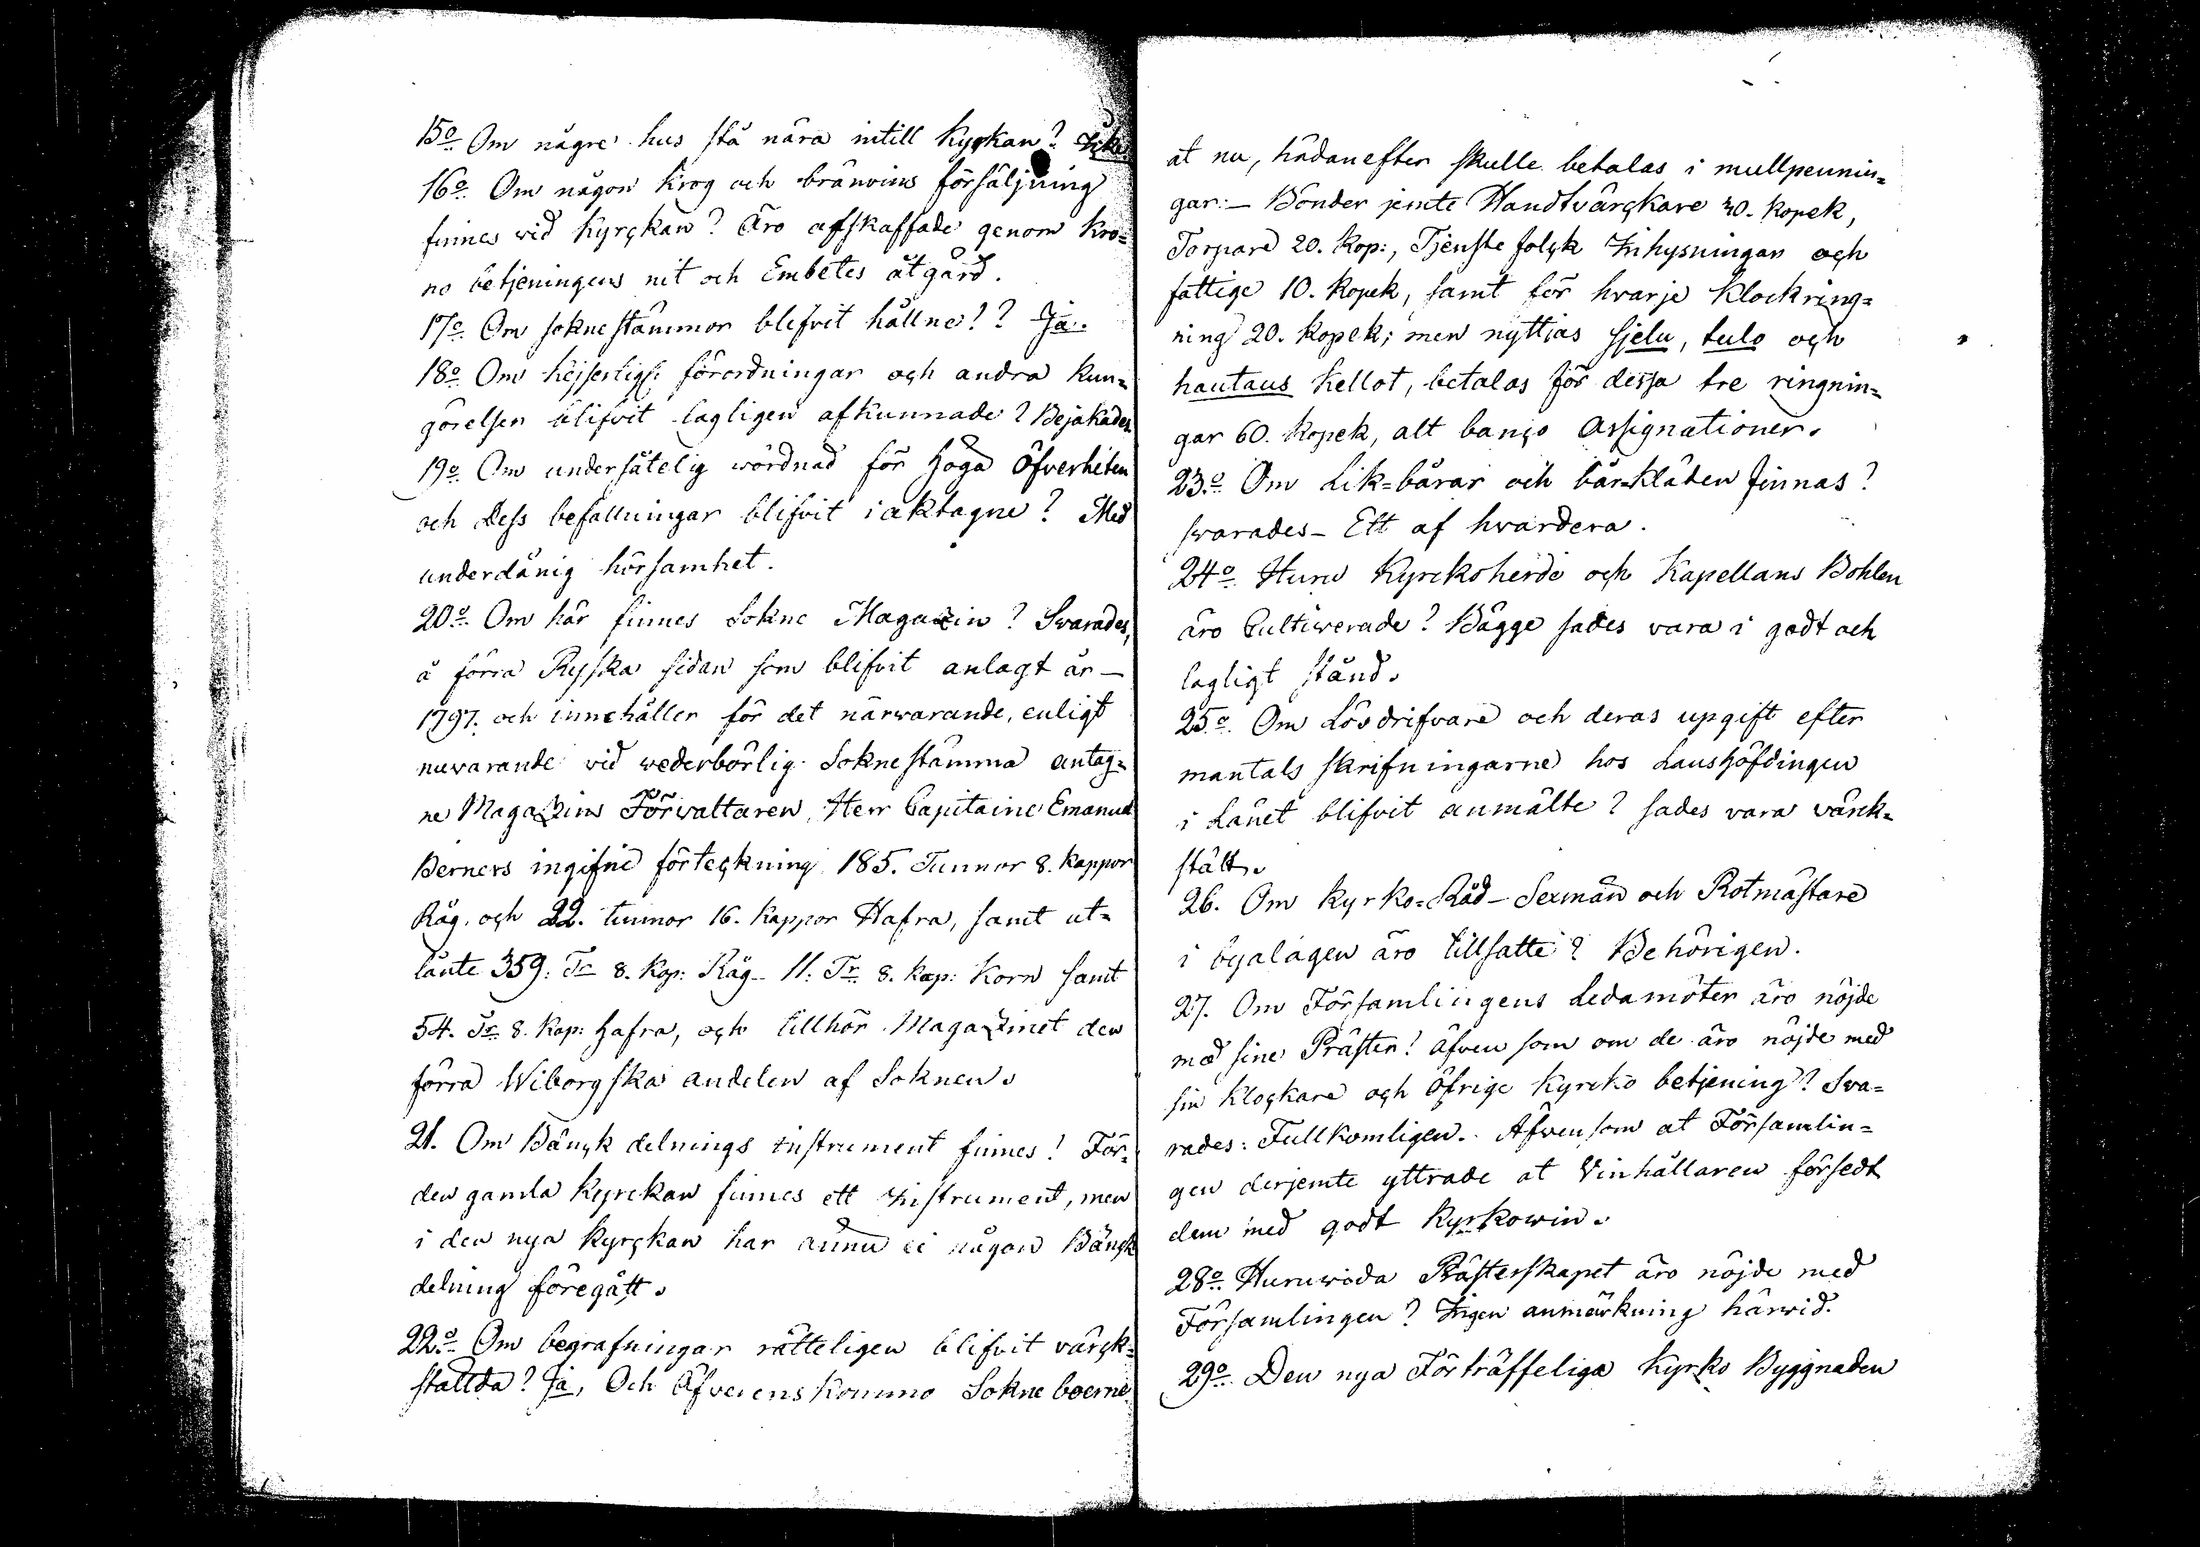 15o Om någre hus stå nära intill Kyrkan? Icke
16o Om någon Krog och bränvins försäljning
finnes wid Kyrckan? Äro afskaffade genom kro=
no betjeningens nit och Embetes åtgärd.
17o Om sokne stämmor blifvit hållne!? Ja.
18o Om kejserlige: förordningar och andra kun=
görelser blifvit lagligen afkunnade? Bejakades
19o Om undersåtelig wördnad för Höga Öfverheten
och Dess befallningar blifvit iakttagne? Med
underdånig hörsamhet.
20o Om här finnes Sokne Magazin? Svarades,
å förra Ryska sidan som blifvit anlagt år —
1797. och innehåller för det närwarande, enligt
nuvarande vid wederbörlig Sokne stämma antag=
ne Magazins Förvaltaren, Herr Capitaine Emanuel
Berners ingifne förteckning 185. Tunnor 8. kappor
Råg. och 22. tunnor 16. kappor Hafra, samt ut=
lånte 359: Tr 8. kap: Råg – 11. Tr 8. kap: Korn samt
54. Tr 8. kap: Hafra, och tillhör Magazinet den
förra Wiborgska andelen af Soknen.
21. Om Bänck delnings instrument finnes! För
den gamla Kyrckan finnes ett Instrument, men
i den nya Kyrckan har ännu ei någon Bänck
delning föregått.
22o Om begrafningar rätteligen blifvit värck=
stältda? Ja, Och Äfverens kommo Sokne boerne
at nu, hädanefter skulle betalas i mullpennin=
gar: – Bönder jemte Handtvärckare 30. kopek,
Torpare 20. kop:, Tjenste folck Inhysningar och
fattige 10. kopek, samt för hvarje Klockring=
ning 20. kopek; men nyttjas sjelu, tulo och
hautaus kellot, betalas för dessa tre ringnin=
gar 60. kopek, alt banco Assignationer.
23.o Om Lik=bårar och bår=kläden finnas?
svarades – Ett af hvardera.
24o Huru Kyrckoherde och Kapellans Bohlen
äro Cultiverade? Bägge sades vara i godt och
lagligt stånd.
25o Om Lösdrifvare och deras upgift efter
mantals skrifningarne hos Landshöfdingen
i Länet blifvit anmälte? sades vara värck=
stält.
26. Om kyrko=Råd – Sexmän och Rotmästare
i byalagen äro tillsatte? Behörigen.
27. Om Församlingens Ledamöter äro nöjde
med sine Präster! äfven som om de äro nöjde med
sin Klockare och Öfrige Kyrcko betjening? Sva=
rades: Fullkomligen. Äfvensom at Församlin=
gen derjemte yttrade at Vinhållaren försedt
dem med godt Kyrkowin.
28o Huruwida Prästerskapet äro nöjde med
Församlingen? Ingen anmärkning härwid.
29o Den nya Förträffeliga Kyrko Byggnaden